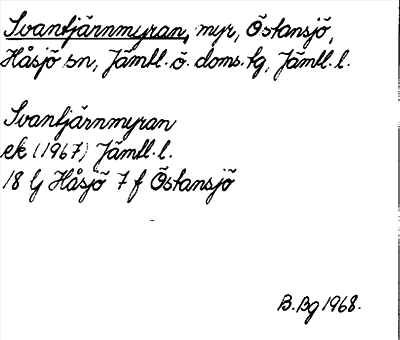 Svantjärnmyran, myr, Östansjö,
Håsjö sn, Jämtl. ö. doms. tg, Jämtl. l.
Svantjärnmyran
ek (1967) Jämtl. l.
18 G Håsjö 7 f Östansjö
B. Bg 1968.